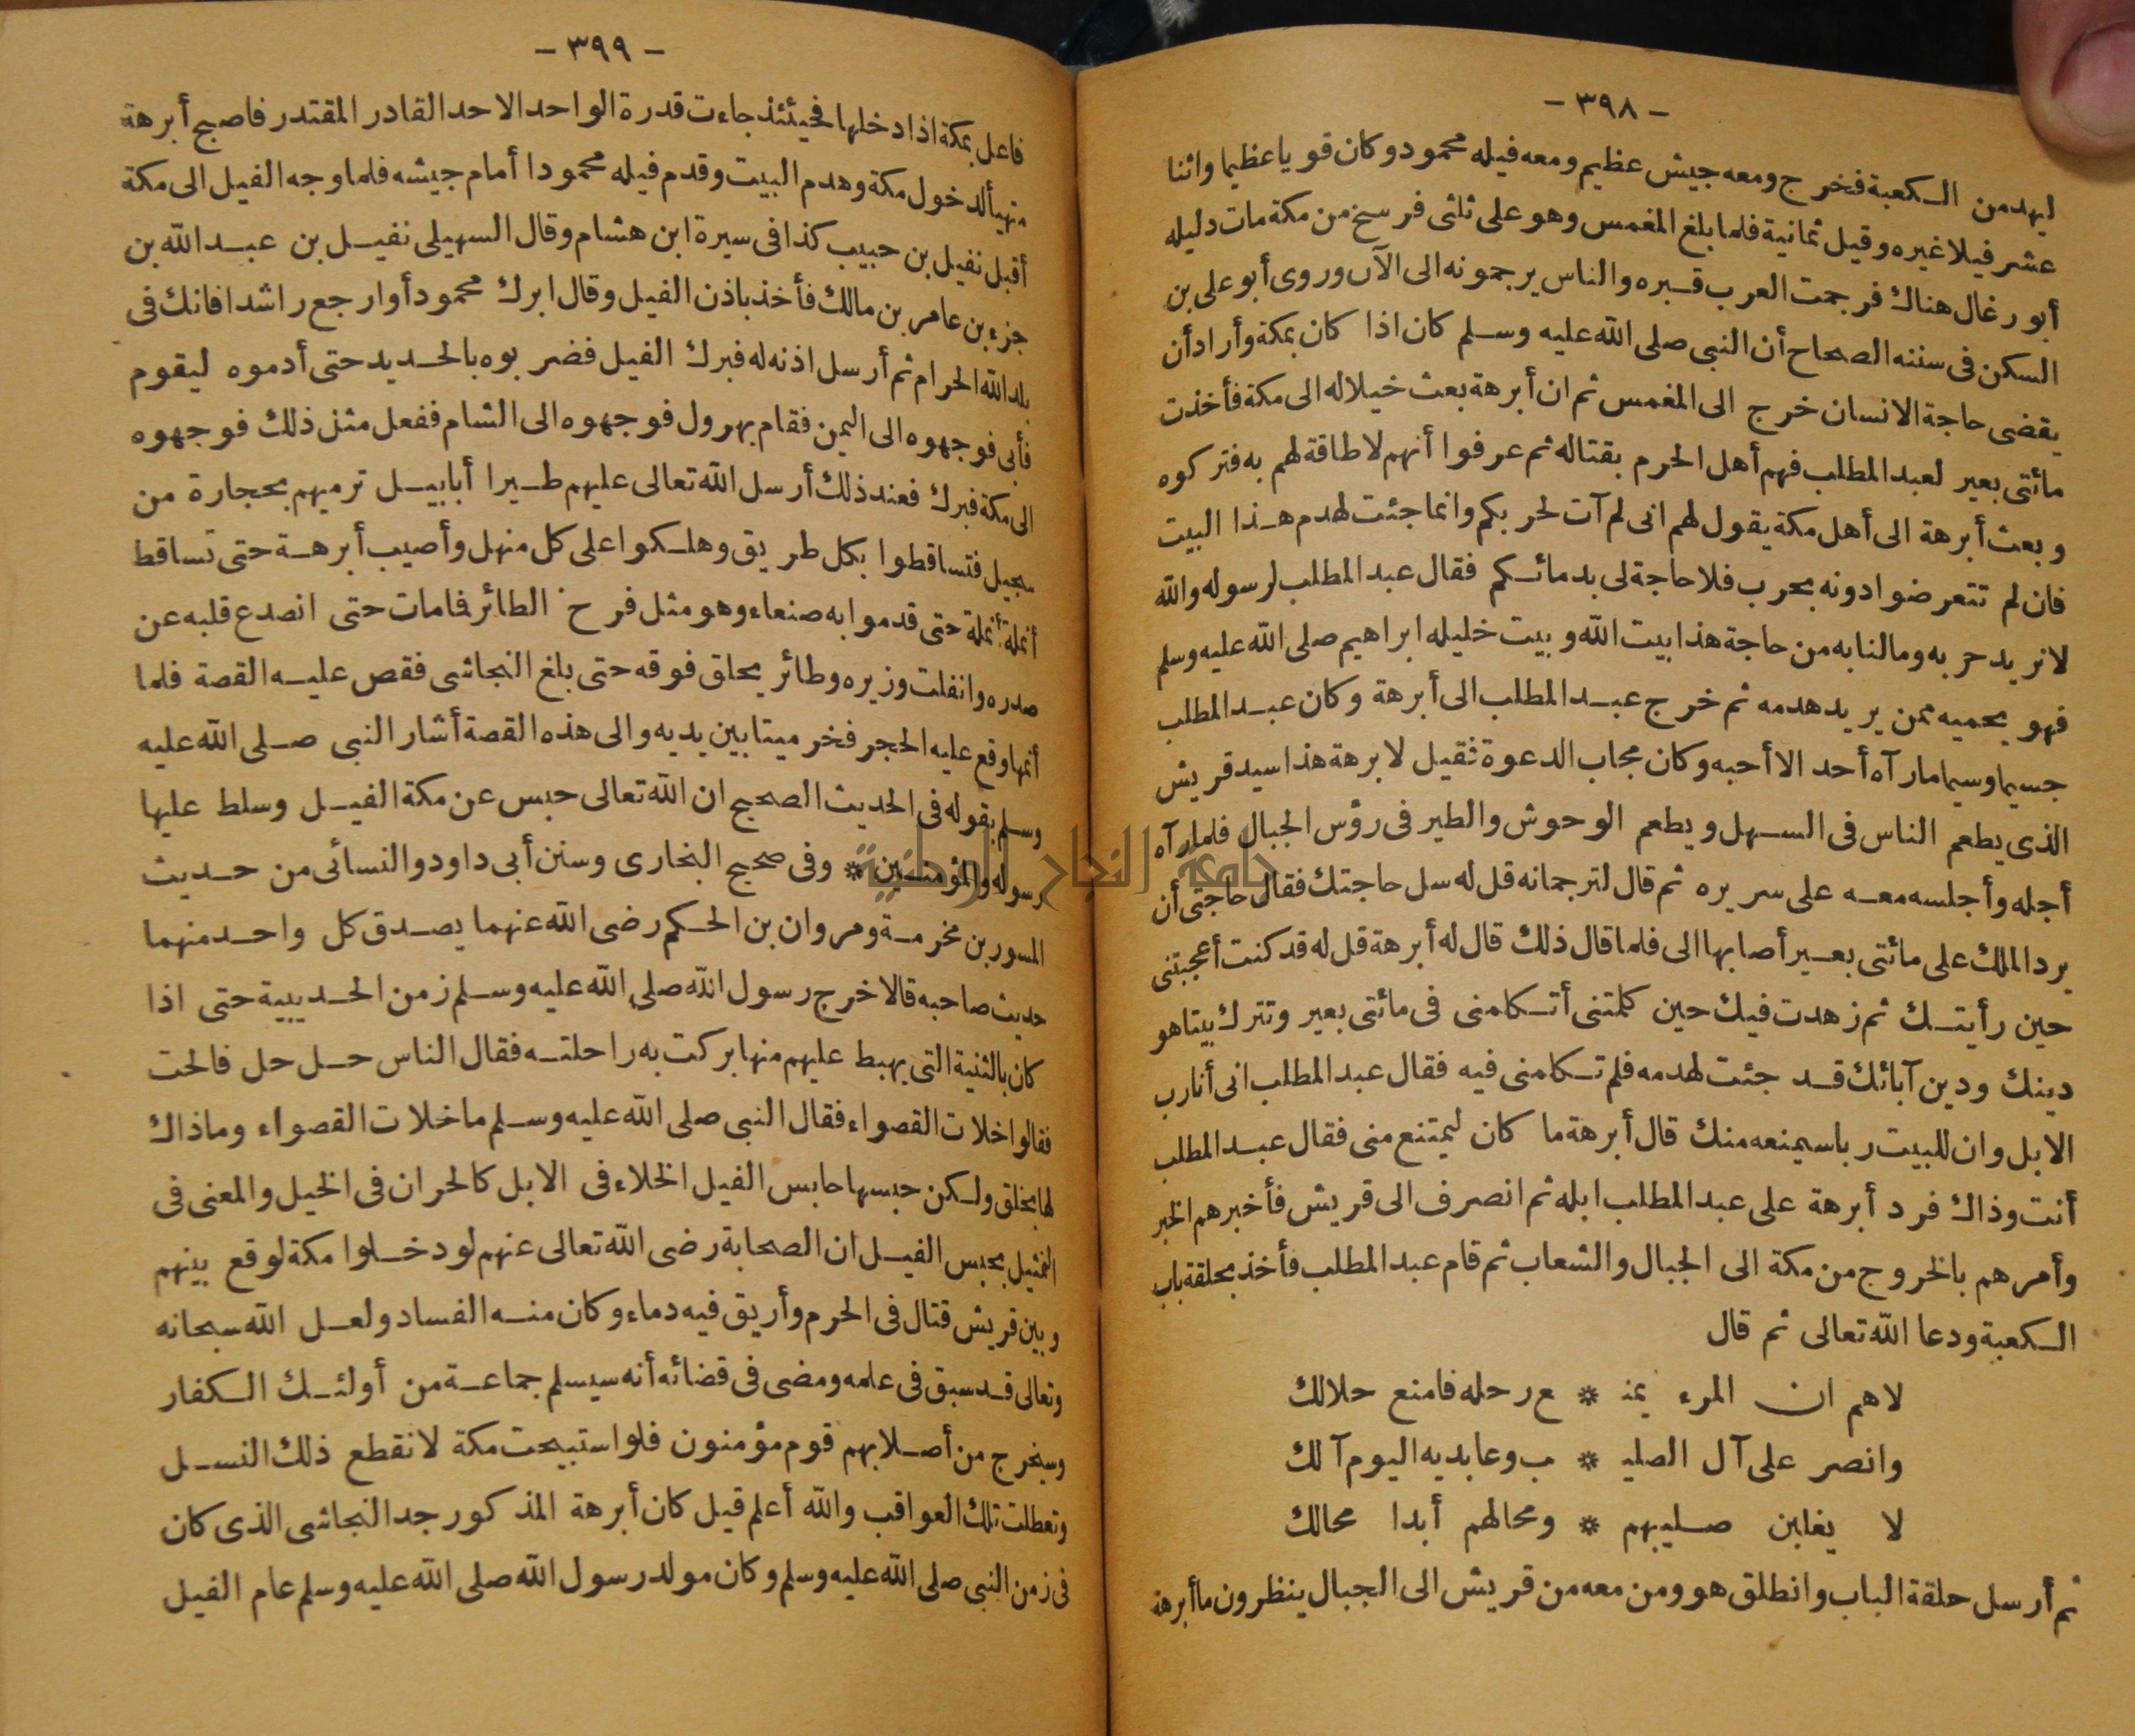 - ٣٩٨ -
ليهدمن الكعبة فخرج ومعه جيش عظيم ومعه فيله محمود وكان قويا عظيما واثنا
عشر فيلا غيره وقيل ثمانية فلما بلغ المغمس وهو على ثلثى فرسخ من مكة مات دليله
أبو رغال هناك فرجمت العرب قبره والناس يرجمونه الى الآن وروى أبو على بن
السكن فى سننه الصحاح أن النبى صلى الله عليه وسلم كان اذا كان بمكة وأراد أن
يقضى حاجة الانسان خرج الى المغمس ثم ان أبرهة بعث خيلا له الى مكة فأخذت
مائتى بعير لعبد المطلب فهم أهل الحرم بقتاله ثم عرفوا أنهم لا طاقة لهم به فتركوه
وبعث أبرهة الى أهل مكة يقول لهم انى لم آت لحربكم وانما جئت لهدم هذا البيت
فان لم تتعرضوا دونه بحرب فلا حاجة لى بدمائكم فقال عبد المطلب لرسوله والله
لا نريد حربه وما لنا به من حاجة هذا بيت الله وبيت خليله ابراهيم صلى الله عليه وسلم
فهو يحميه ممن يريد هدمه ثم خرج عبد المطلب الى أبرهة وكان عبد المطلب
جسيما وسيما ما رآه أحد الا أحبه وكان مجاب الدعوة فقيل لابرهة هذا سيد قريش
الذى يطعم الناس فى السهل ويطعم الوحوش والطير فى رؤس الجبال فلما رآه
أجله وأجلسه معه على سريره ثم قال لترجمانه قل له سل حاجتك فقال حاجتى أن
يرد الملك على مائتى بعير أصابها الى فلما قال ذلك قال له أبرهة قل له قد كنت أعجبتنى
حين رأيتك ثم زهدت فيك حين كلمتنى أتكلمنى فى مائتى بعير وتترك بيتا هو
دينك ودين آبائك قد جئت لهدمه فلم تكلمنى فيه فقال عبد المطلب انى أنا رب
الابل وان للبيت ربا سيمنعه منك قال أبرهة ما كان ليمتنع منى فقال عبد المطلب
أنت وذاك فرد أبرهة على عبد المطلب ابله ثم انصرف الى قريش فأخبرهم الخبر
وأمرهم بالخروج من مكة الى الجبال والشعاب ثم قام عبد المطلب فأخذ بحلقة باب
الكعبة ودعا الله تعالى ثم قال
لاهم ان المرء يمنـ * ع رحله فامنع حلالك
وانصر على آل الصليـ * ب وعابديه اليوم آلك
لا يغلبن صليبهم * ومحالهم أبدا محالك
ثم أرسل حلقة الباب وانطلق هو ومن معه من قريش الى الجبال ينظرون ما أبرهة
- ٣٩٩ -
فاعل بمكة اذا دخلها فحينئذ جاءت قدرة الواحد الاحد القادر المقتدر فاصبح أبرهة
متهيأ لدخول مكة وهدم البيت وقدم فيله محمودا أمام جيشه فلما وجه الفيل الى مكة
أقبل نفيل بن حبيب كذا فى سيرة ابن هشام وقال السهيلى نفيل بن عبد الله بن
جزء بن عامر بن مالك فأخذ باذن الفيل وقال ابرك محمود أو ارجع راشدا فانك فى
بلد الله الحرام ثم أرسل اذنه له فبرك الفيل فضربوه بالحديد حتى أدموه ليقوم
فأبى فوجهوه الى اليمن فقام يهرول فوجهوه الى الشام ففعل مثل ذلك فوجهوه
الى مكة فبرك فعند ذلك أرسل الله تعالى عليهم طيرا أبابيل ترميهم بحجارة من
سجيل فتساقطوا بكل طريق وهلكوا على كل منهل وأصيب أبرهة حتى تساقط
أنملة أنملة حتى قدموا به صنعاء وهو مثل فرخ الطائر فامات حتى انصدع قلبه عن
صدره وانفلت وزيره وطائر يحلق فوقه حتى بلغ النجاشى فقص عليه القصة فلما
أنهاوقع عليه الحجر فخر ميتا بين يديه والى هذه القصة أشار النبى صلى الله عليه
وسلم بقوله فى الحديث الصحيح ان الله تعالى حبس عن مكة الفيل وسلط عليها
رسوله والمؤمنين * وفى صحيح البخارى وسنن أبى داود والنسائى من حديث
المسور بن مخرمة ومروان بن الحكم رضى الله عنهما يصدق كل واحد منهما
حديث صاحبه قالا خرج رسول الله صلى الله عليه وسلم زمن الحديبية حتى اذا
كان بالثنية التى يهبط عليهم منها بركت به راحلته فقال الناس حل حل فالحت
فقالوا خلات القصواء فقال النبى صلى الله عليه وسلم ما خلات القصواء وما ذاك
لها بخلق ولكن حبسها حابس الفيل الخلاء فى الابل كالحران فى الخيل والمعنى فى
التمثيل بحبس الفيل ان الصحابة رضى الله تعالى عنهم لو دخلوا مكة لوقع بينهم
وبين قريش قتال فى الحرم وأريق فيه دماء وكان منه الفساد ولعل الله سبحانه
وتعالى قد سبق فى علمه ومضى فى قضائه أنه سيسلم جماعة من أولئك الكفار
وسيخرج من أصلابهم قوم مؤمنون فلو استبيحت مكة لانقطع ذلك النسل
وتعطلت تلك العواقب والله أعلم قيل كان أبرهة المذكور جد النجاشى الذى كان
فى زمن النبى صلى الله عليه وسلم وكان مولد رسول الله صلى الله عليه وسلم عام الفيل
جامعة النجاح الوطنية